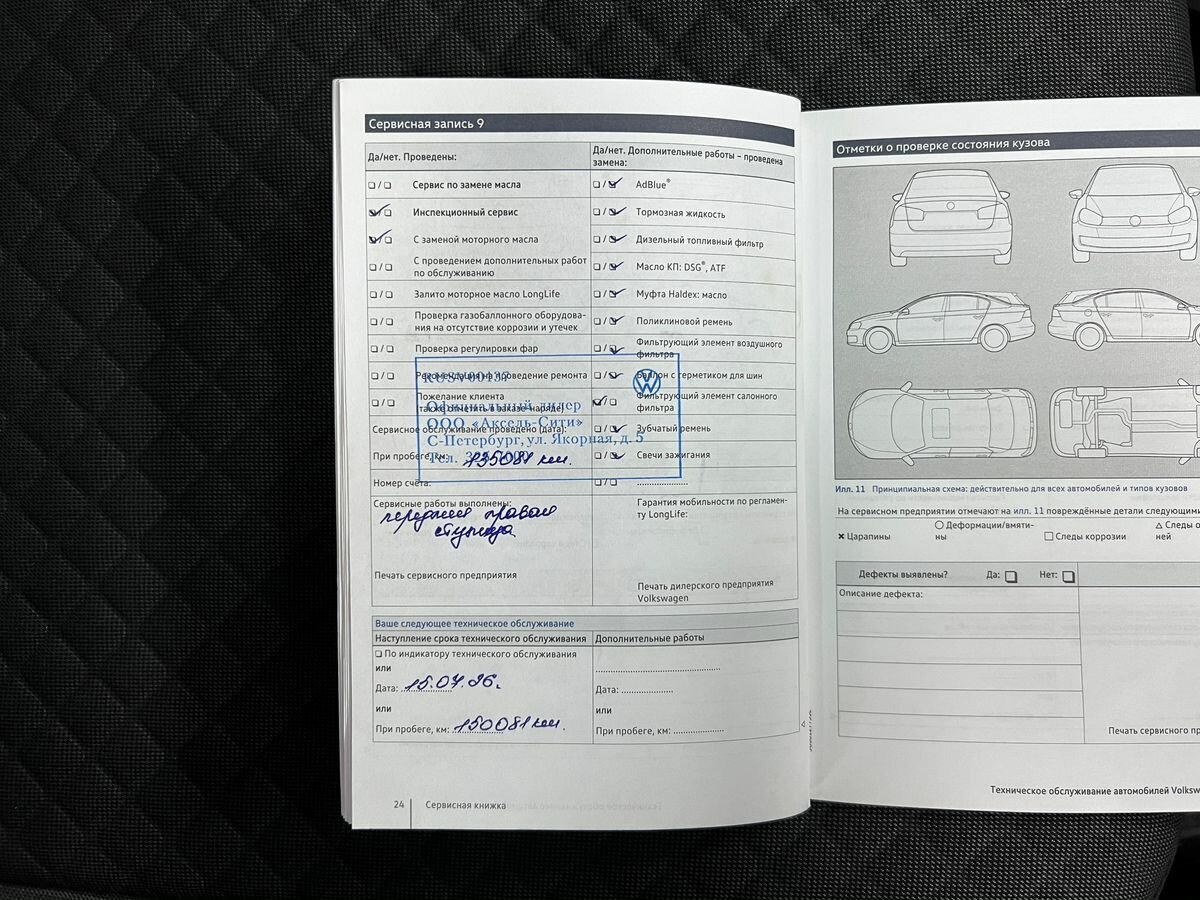 Сервисная запись 9
Да/нет. Проведены:
Да/нет. Дополнительные работы – проведена замена:
Сервис по замене масла
Инспекционный сервис
С заменой моторного масла
С проведением дополнительных работ
по обслуживанию
Залито моторное масло LongLife
Проверка газобаллонного оборудова-
ния на отсутствие коррозии и утечек
Проверка регулировки фар
Рекомендация на проведение ремонта
Пожелание клиента
(также отметить в заказе-наряде)
Сервисное обслуживание проведено (дата):
При пробеге, км: 135081 км.
Номер счёта:
Сервисные работы выполнены:
передняя правая
ступица
Печать сервисного предприятия
AdBlue®
Тормозная жидкость
Дизельный топливный фильтр
Масло КП: DSG®, ATF
Муфта Haldex: масло
Поликлиновой ремень
Фильтрующий элемент воздушного
фильтра
Баллон с герметиком для шин
Фильтрующий элемент салонного
фильтра
Зубчатый ремень
Свечи зажигания
Гарантия мобильности по регламен-
ту LongLife:
Печать дилерского предприятия
Volkswagen
Официальный дилер
ООО «Аксель-Сити»
С-Петербург, ул. Якорная, д. 5
Тел.
Ваше следующее техническое обслуживание
Наступление срока технического обслуживания
По индикатору технического обслуживания
или
Дата: 15.07.26г.
или
При пробеге, км: 150081 км.
Дополнительные работы
Дата:
или
При пробеге, км:
24
Сервисная книжка
Отметки о проверке состояния кузова
Илл. 11 Принципиальная схема: действительно для всех автомобилей и типов кузовов
На сервисном предприятии отмечают на илл. 11 повреждённые детали следующими
× Царапины
○ Деформации/вмяти-
ны
□ Следы коррозии
△ Следы
ней
Дефекты выявлены? Да: Нет:
Описание дефекта:
Печать сервисного
Техническое обслуживание автомобилей